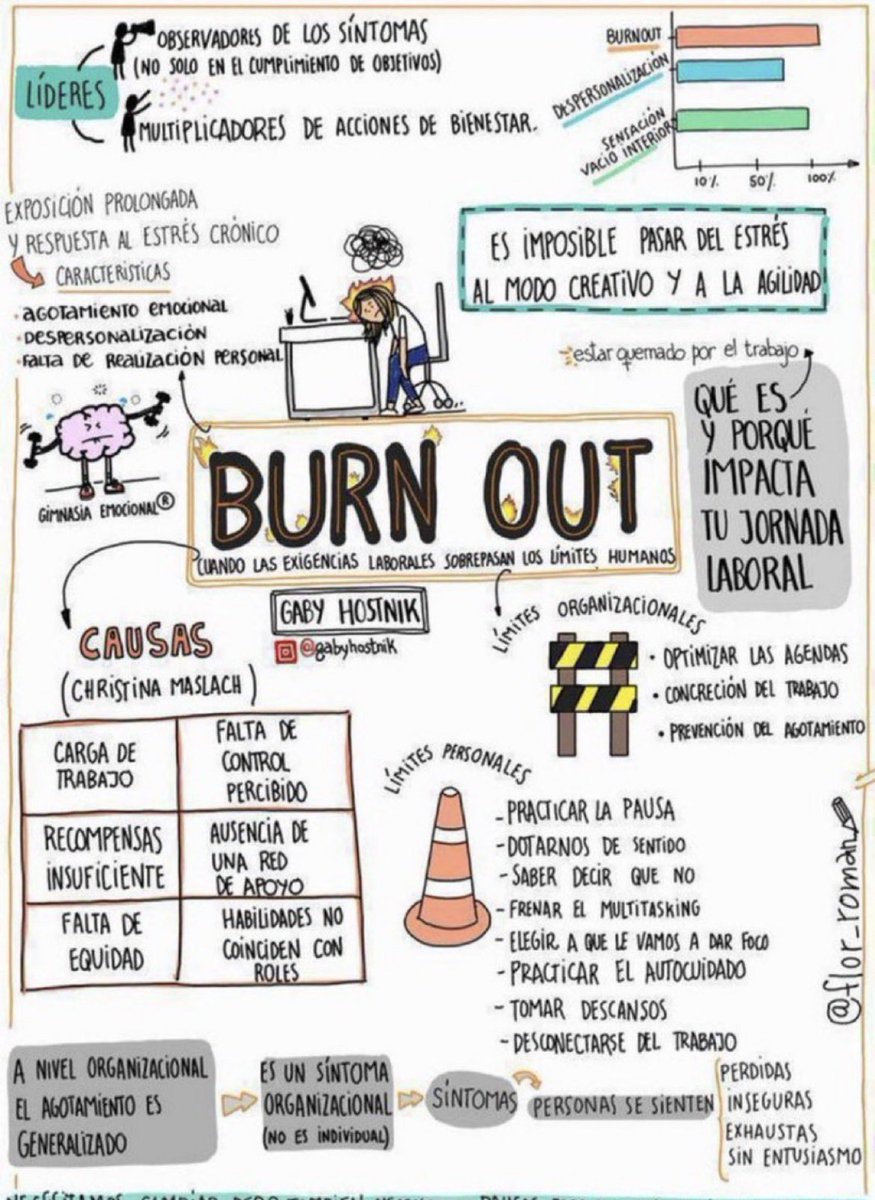 LÍDERES
OBSERVADORES DE LOS SÍNTOMAS
(NO SOLO EN EL CUMPLIMIENTO DE OBJETIVOS)
MULTIPLICADORES DE ACCIONES DE BIENESTAR.
BURNOUT
DESPERSONALIZACIÓN
SENSACIÓN
VACIO INTERIOR
10% 50% 100%
EXPOSICIÓN PROLONGADA
Y RESPUESTA AL ESTRÉS CRÓNICO
CARACTERISTICAS
• AGOTAMIENTO EMOCIONAL
• DESPERSONALIZACIÓN
• FALTA DE REALIZACIÓN PERSONAL
ES IMPOSIBLE PASAR DEL ESTRÉS
AL MODO CREATIVO Y A LA AGILIDAD
estar quemado por el trabajo
QUÉ ES
Y PORQUÉ
IMPACTA
TU JORNADA
LABORAL
GIMNASIA EMOCIONAL®
BURN OUT
CUANDO LAS EXIGENCIAS LABORALES SOBREPASAN LOS LÍMITES HUMANOS
GABY HOSTNIK
@gabyhostnik
CAUSAS
(CHRISTINA MASLACH)
CARGA DE
TRABAJO
FALTA DE
CONTROL
PERCIBIDO
RECOMPENSAS
INSUFICIENTE
AUSENCIA DE
UNA RED
DE APOYO
FALTA DE
EQUIDAD
HABILIDADES NO
COINCIDEN CON
ROLES
LÍMITES ORGANIZACIONALES
• OPTIMIZAR LAS AGENDAS
• CONCRECIÓN DEL TRABAJO
• PREVENCIÓN DEL AGOTAMIENTO
LÍMITES PERSONALES
- PRACTICAR LA PAUSA
- DOTARNOS DE SENTIDO
- SABER DECIR QUE NO
- FRENAR EL MULTITASKING
- ELEGIR A QUE LE VAMOS A DAR FOCO
- PRACTICAR EL AUTOCUIDADO
- TOMAR DESCANSOS
- DESCONECTARSE DEL TRABAJO
@flor_roman
A NIVEL ORGANIZACIONAL
EL AGOTAMIENTO ES
GENERALIZADO
ES UN SÍNTOMA
ORGANIZACIONAL
(NO ES INDIVIDUAL)
SÍNTOMAS
PERSONAS SE SIENTEN
PERDIDAS
INSEGURAS
EXHAUSTAS
SIN ENTUSIASMO